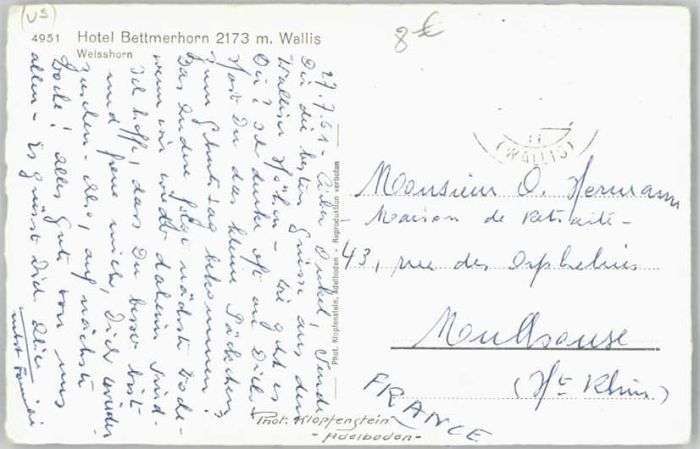 (US)
4951 Hotel Bettmerhorn 2173 m. Wallis
Weisshorn
8 €
27.7.61. Lieber Onkel, Sende
Dir die besten Grüsse aus den
Walliser Höhen – wie geht es
Dir? Ich denke oft an Dich.
Hast Du das kleine Päckchen
zum Geburtstag bekommen?
Das Andere folgt nächste Woche
wenn wir wieder daheim sind.
Ich hoffe, dass Du besser bist
und freue mich, Dich wieder
zu sehen. Also, auf nächste
Woche! Alles Gute von uns
allen – Es grüsst Dich
nebst Familie
Phot. Klopfenstein, Adelboden – Reproduktion verboten
(WALLIS)
Monsieur O. Hermann
– Maison de Retraite –
43, rue des Orphelins
Mulhouse
(Ht Rhin.)
FRANCE
Phot. Klopfenstein
– Adelboden –